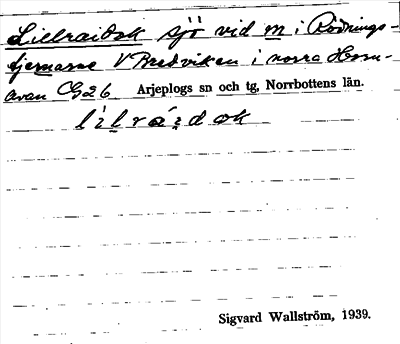 Lillraidok sjö vid m i Rödnings-
tjernarne V Bredviken i norra Horn-
avan CG26 Arjeplogs sn och tg, Norrbottens län.
lilraidok
Sigvard Wallström, 1939.